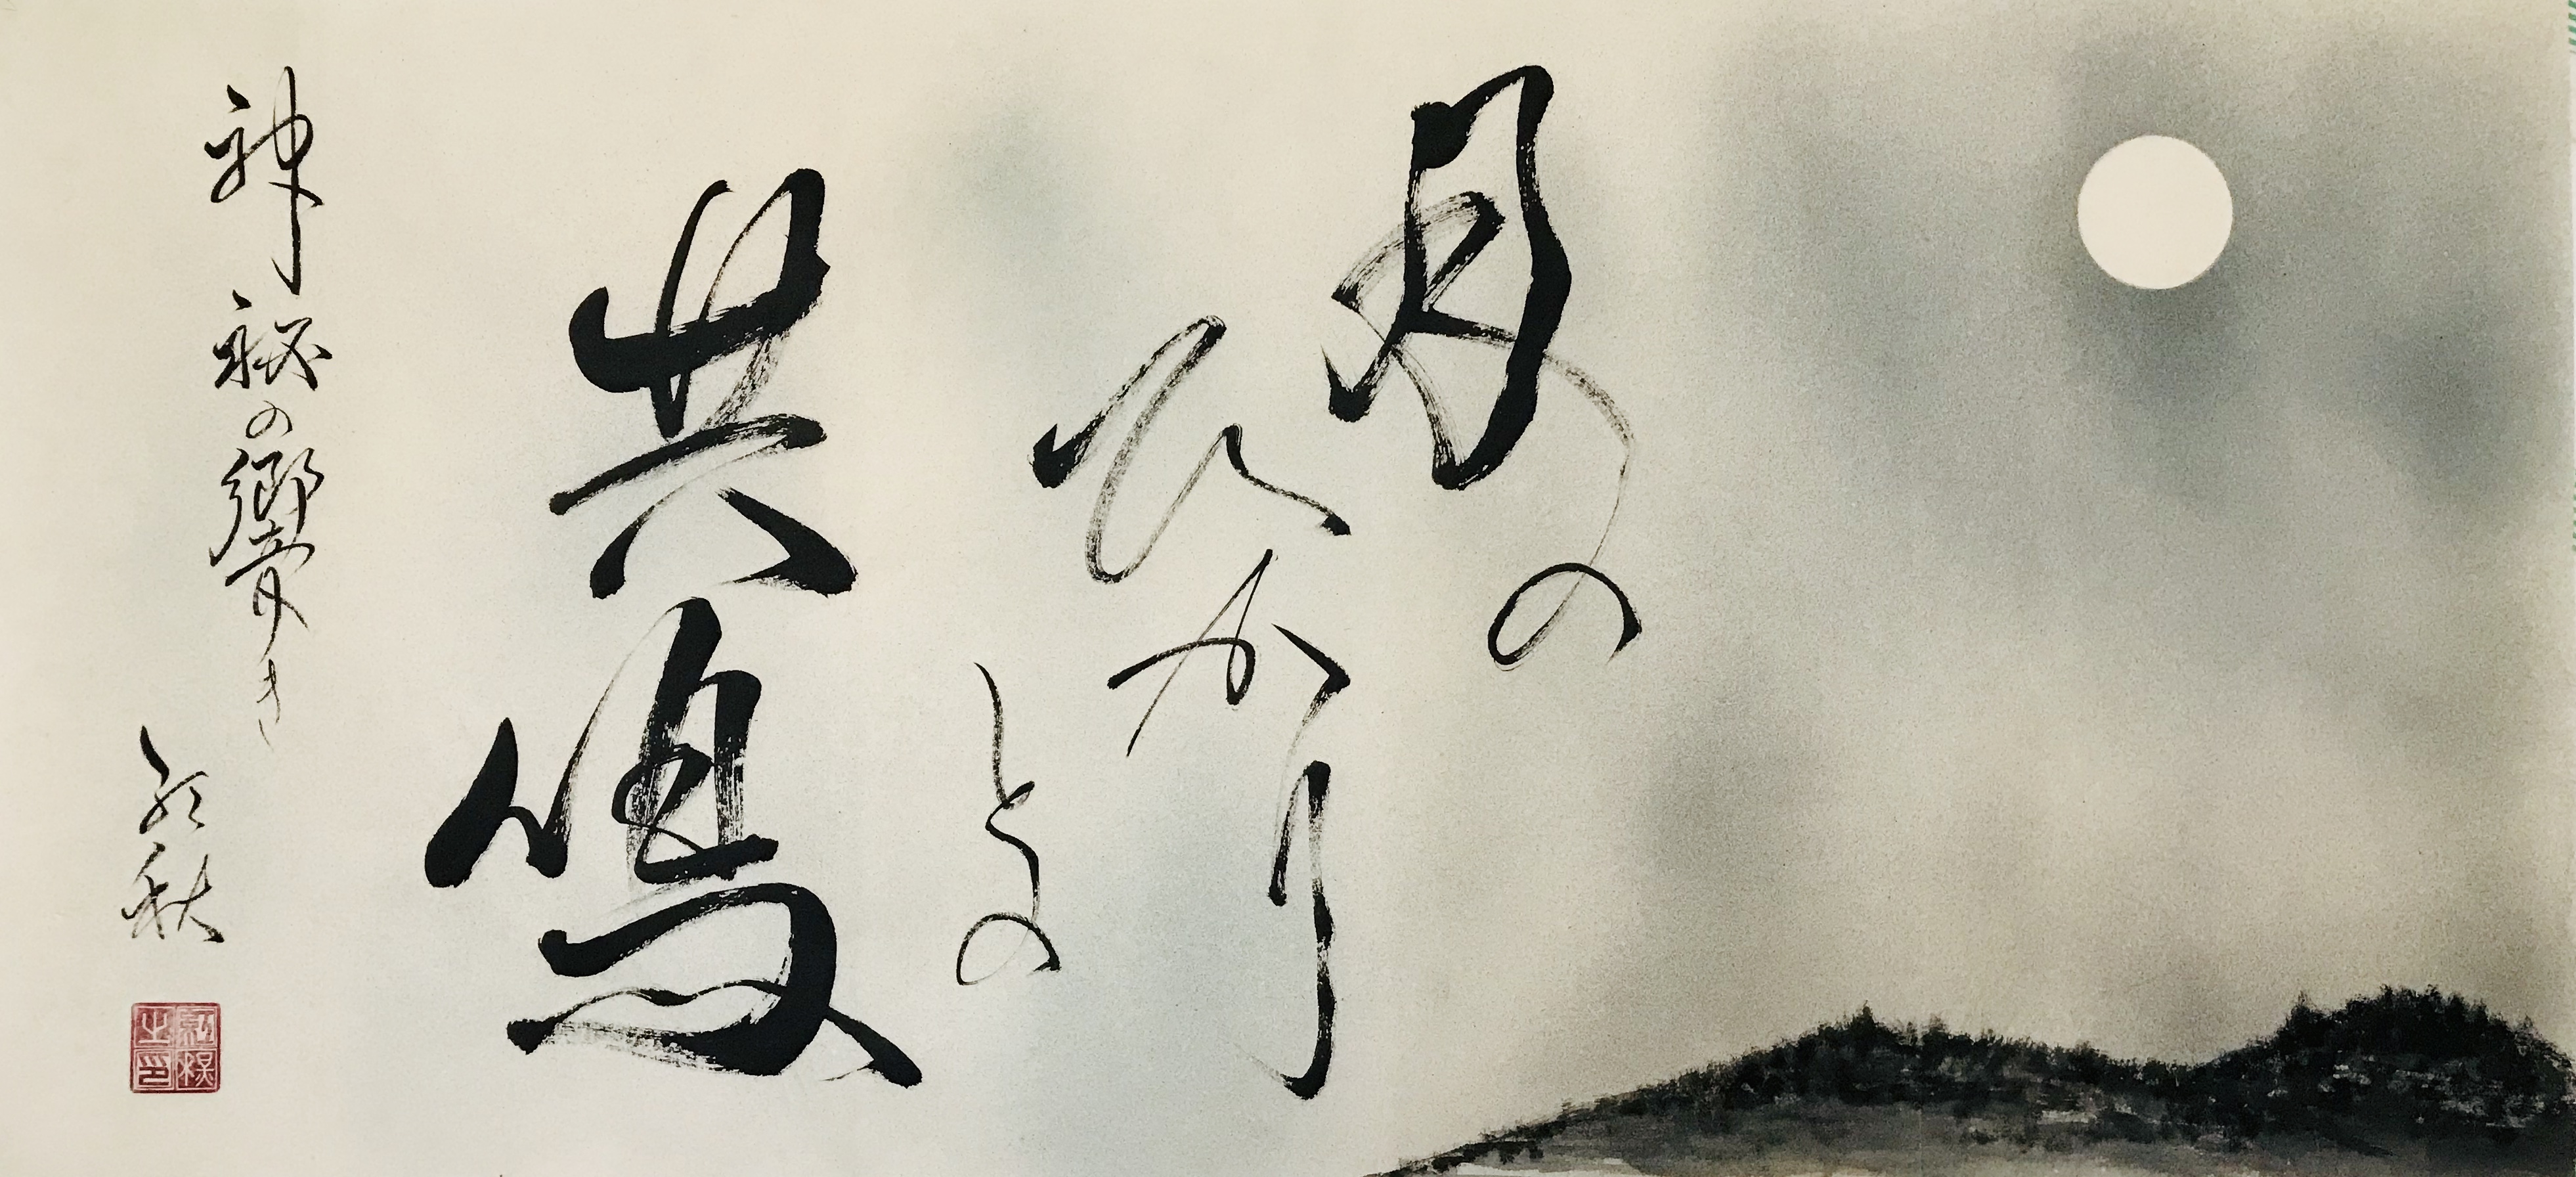 月の
ひかり
との
共鳴
神秘の響き